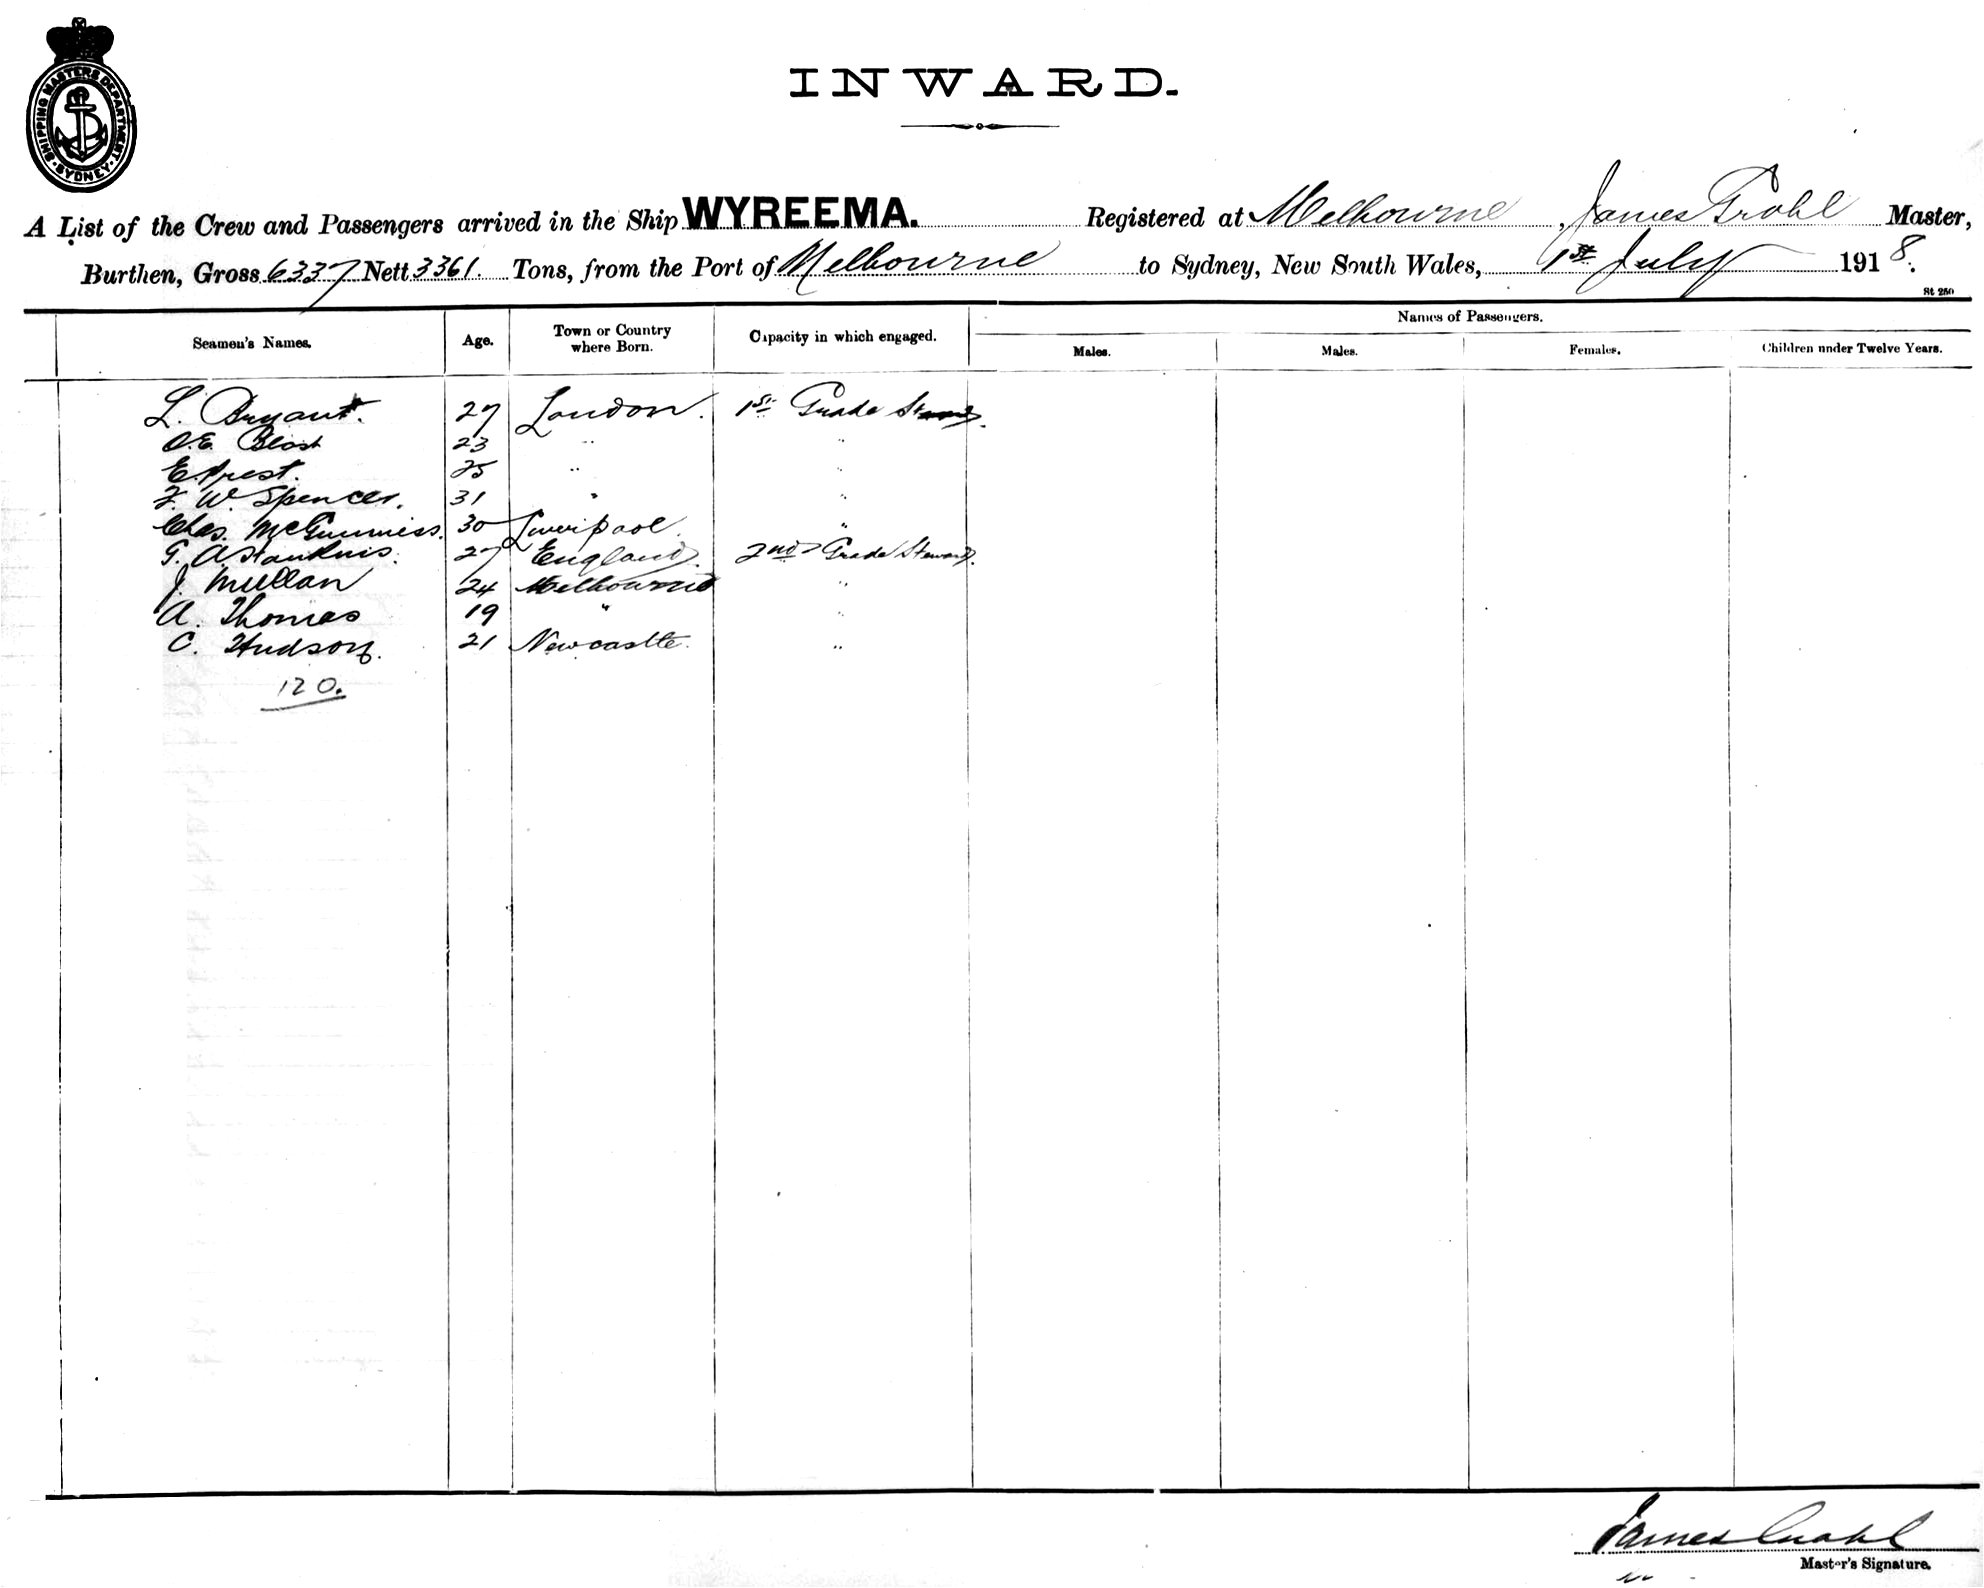 SHIPPING MASTERS DEPARTMENT · SYDNEY ·
INWARD.
A List of the Crew and Passengers arrived in the Ship WYREEMA. Registered at Melbourne, James Grahl Master,
Burthen, Gross 6337 Nett 3361. Tons, from the Port of Melbourne to Sydney, New South Wales, 1st July 1918.
St 250
Seamen's Names. Age. Town or Country where Born. Capacity in which engaged. Names of Passengers.
Males. Males. Females. Children under Twelve Years.
L. Bryant. 27 London. 1st Grade Steward.
23 " "
E. Prest. 25 " "
F. W. Spencer. 31 " "
Chas. McGuinness. 30 Liverpool. "
G. A. Hankins. 27 England. 2nd Grade Steward.
J. Mullan 24 Melbourne "
A. Thomas 19 " "
C. Hudson. 21 Newcastle. "
120.
James Grahl
Master's Signature.